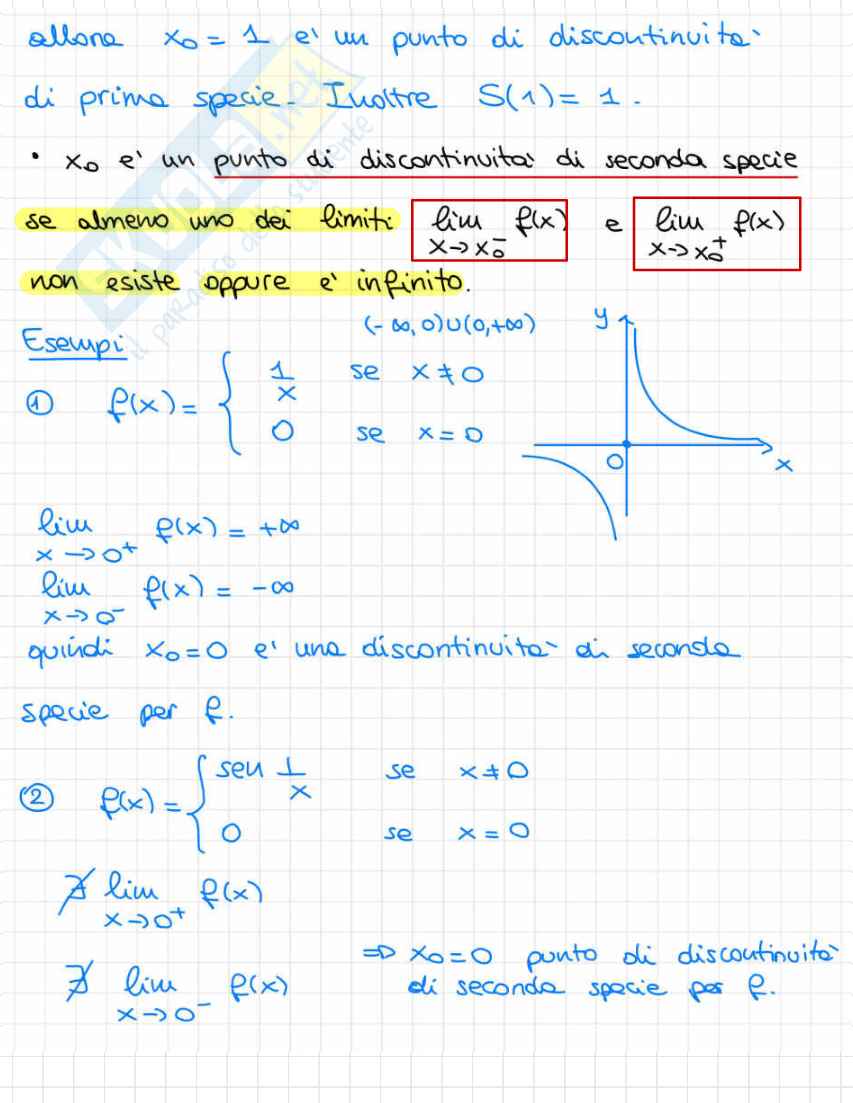 allora x₀ = 1 e' un punto di discontinuita`
di prima specie. Inoltre S(1) = 1.
• x₀ e' un punto di discontinuita` di seconda specie
se almeno uno dei limiti lim x→x₀⁻ f(x) e lim x→x₀⁺ f(x)
non esiste oppure e' infinito.
Esempi
(-∞,0)∪(0,+∞)
① f(x) = { 1/x se x ≠ 0
0 se x = 0
y
O
x
lim x→0⁺ f(x) = +∞
lim x→0⁻ f(x) = -∞
quindi x₀=0 e' una discontinuita` di seconda
specie per f.
② f(x) = { sen 1/x se x ≠ 0
0 se x = 0
∄ lim x→0⁺ f(x)
∄ lim x→0⁻ f(x)
⇒ x₀=0 punto di discontinuita`
di seconda specie per f.
SKUOLA.net
il paradiso dello studente